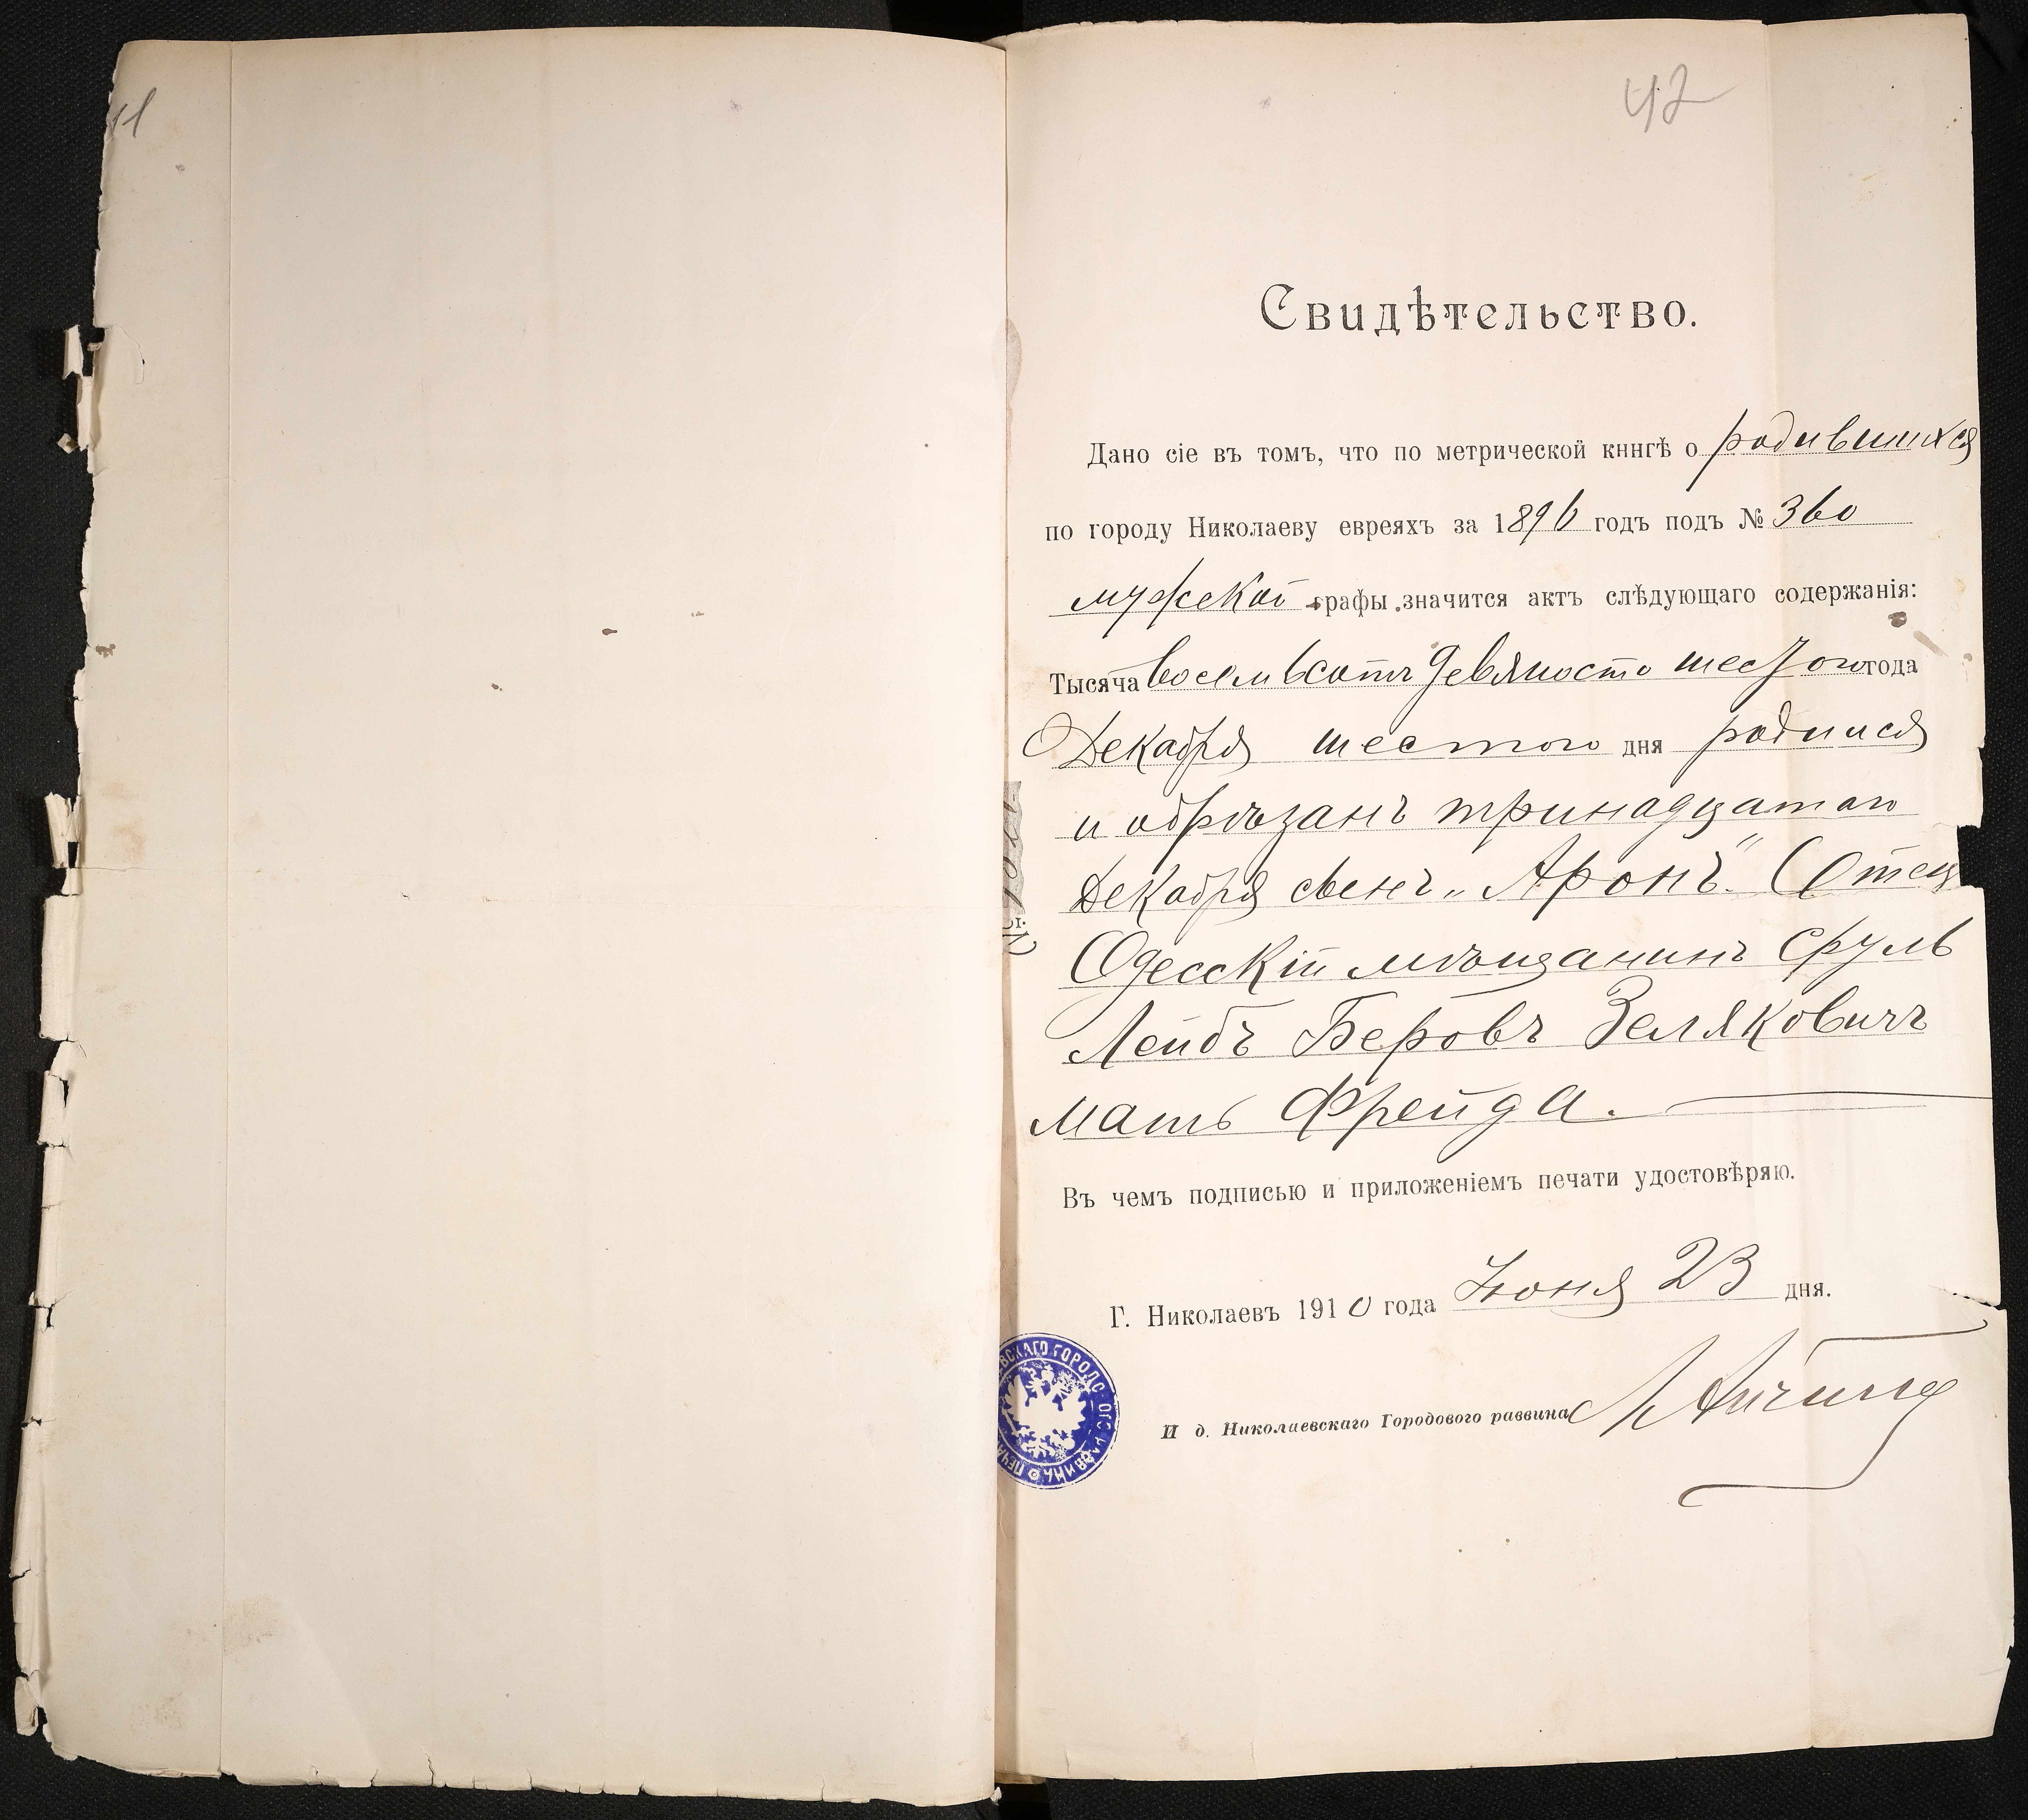 42
Свидѣтельство.
Дано сіе въ томъ, что по метрической кннгѣ о родившихся
по городу Николаеву евреяхъ за 1896 годъ подъ № 360
мужской графы значится актъ слѣдующаго содержанія:
Тысяча восемьсотъ девяносто шестого года
Декабря шестого дня родился
и обрѣзанъ тринадцатаго
Декабря сынъ „Аронъ“. Отецъ
Одесскій мѣщанинъ Сруль
Лейбъ Беровъ Зеляковичъ
мать Фрейда.
Въ чемъ подписью и приложеніемъ печати удостовѣряю.
Г. Николаевъ 1910 года Іюня 23 дня.
И д. Николаевскаго Городового раввина